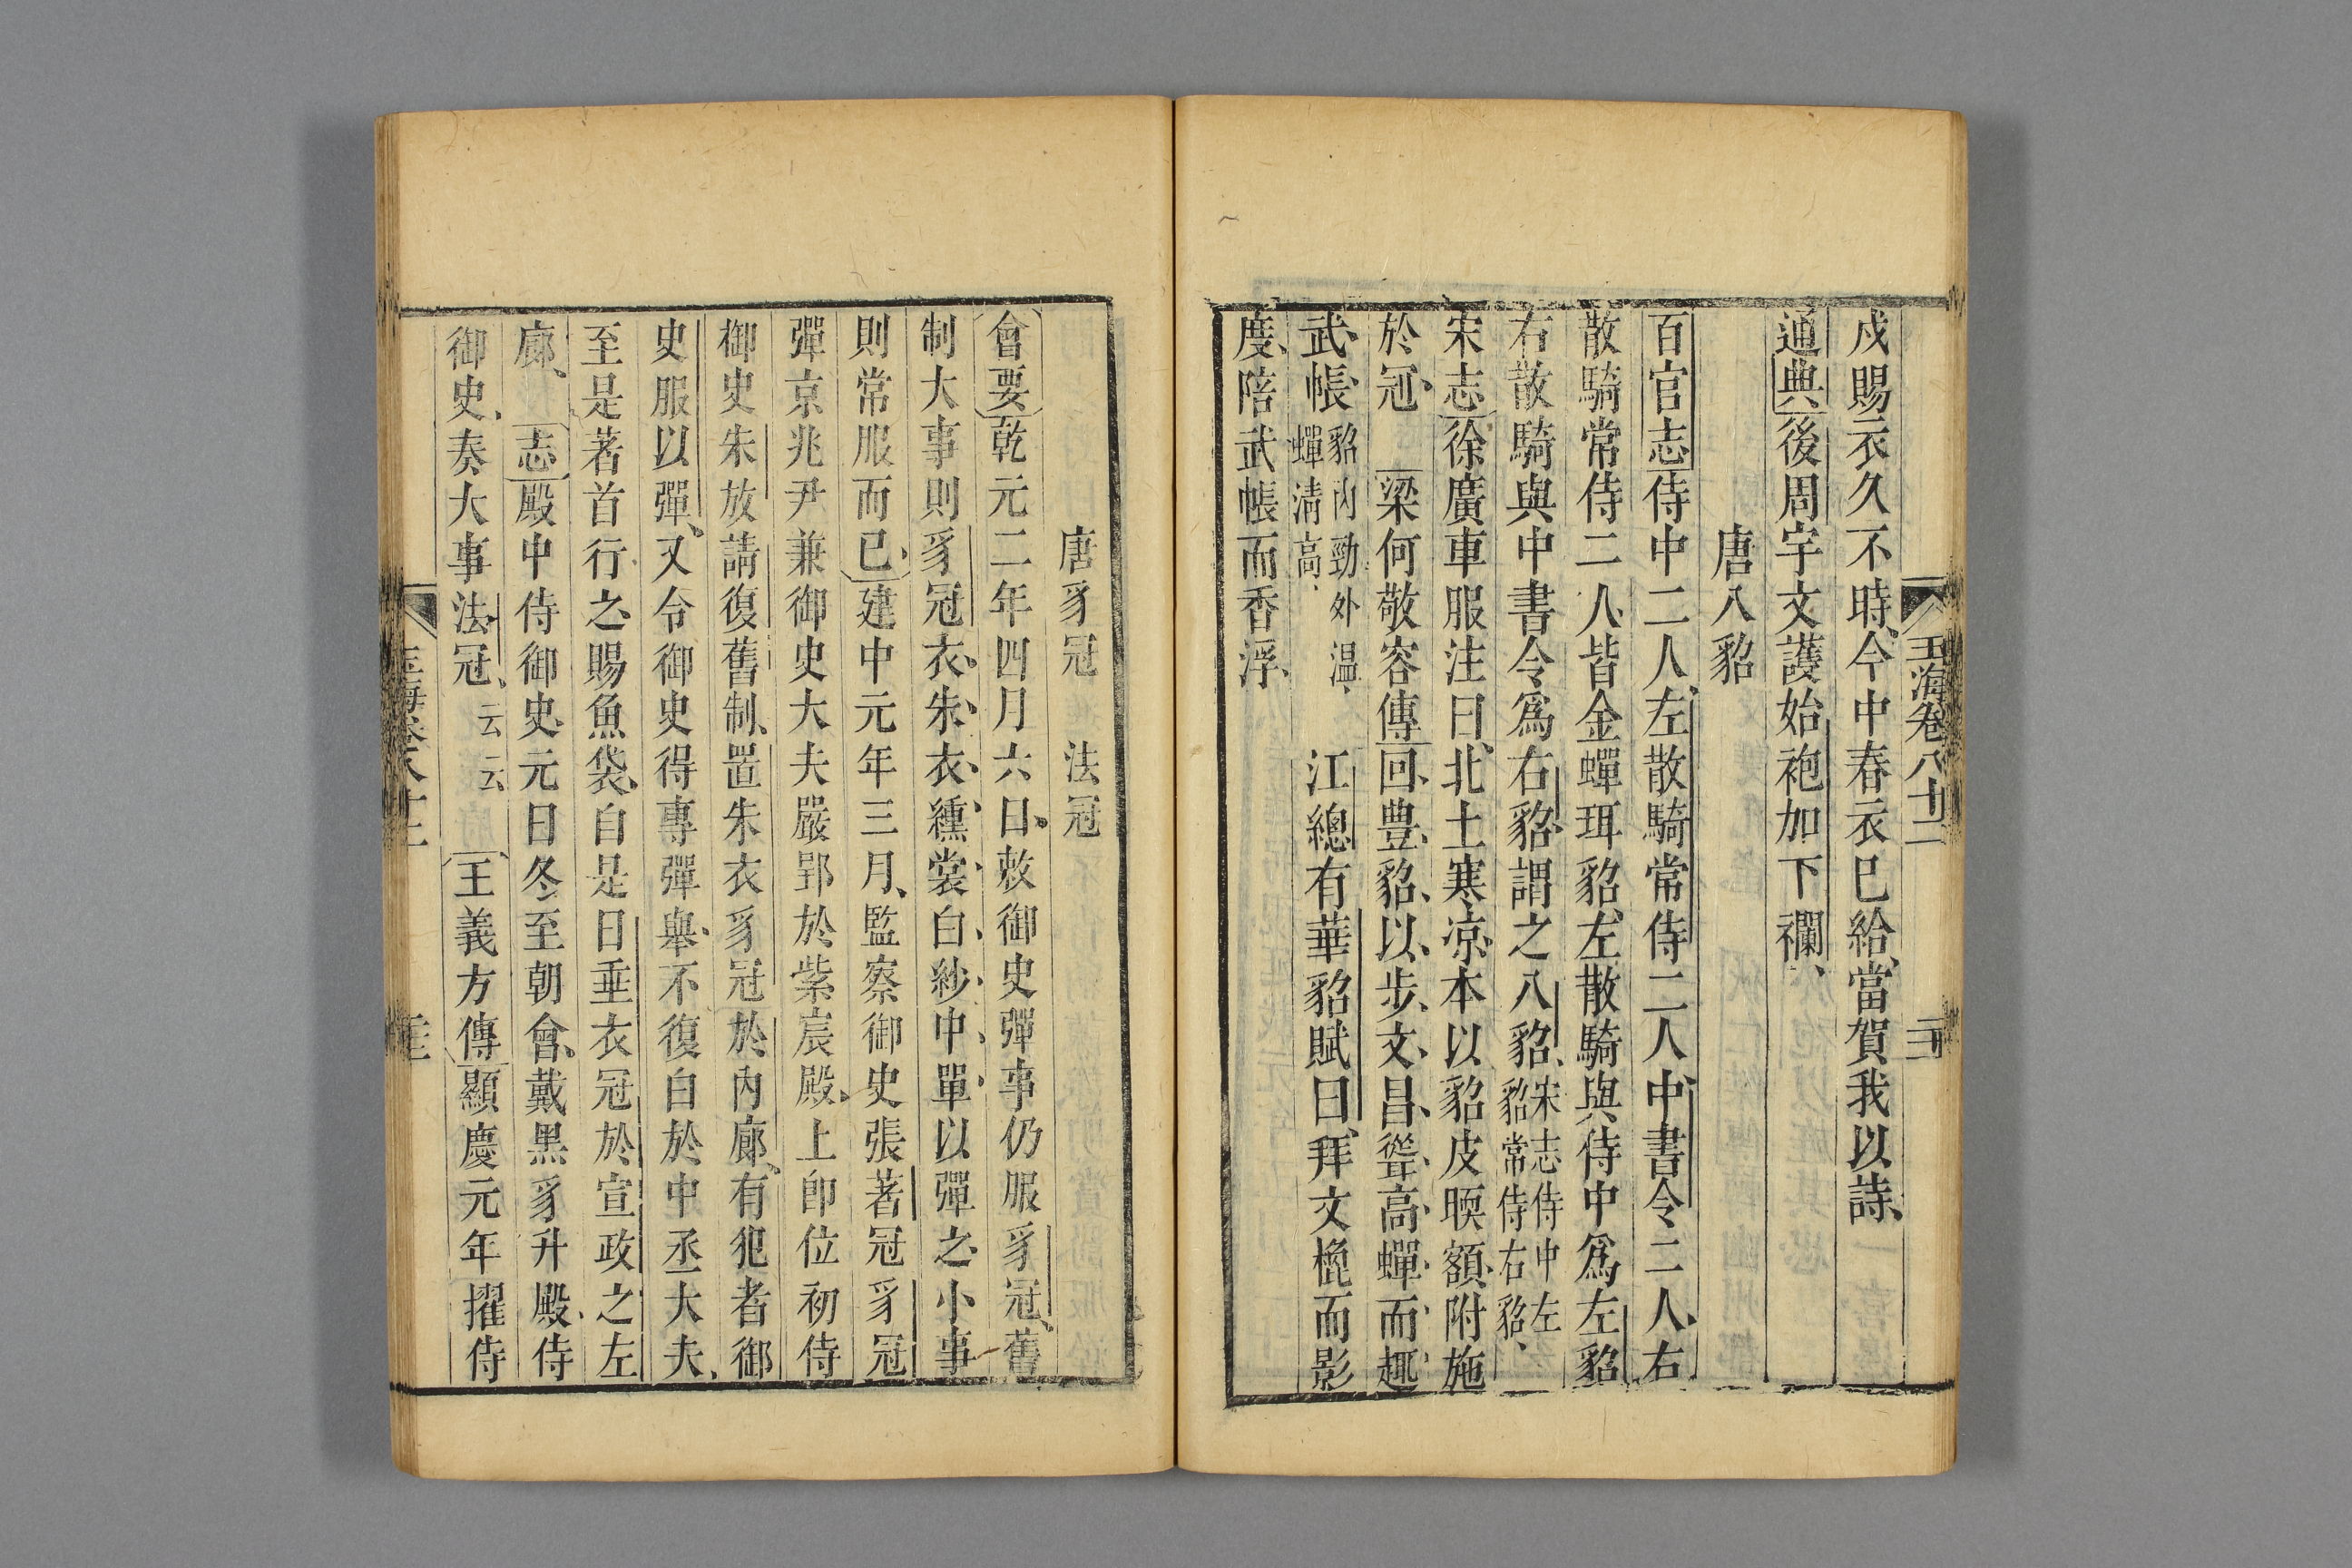 玉海卷八十二
戍賜衣久不時今中春衣巳給當賀我以詩
通典後周宇文護始袍加下襴
唐八貂
百官志侍中二人左散騎常侍二人中書令二人右
散騎常侍二人皆金蟬珥貂左散騎與侍中爲左貂
右散騎與中書令爲右貂謂之八貂宋志侍中左貂常侍右貂
宋志徐廣車服注曰北土寒凉本以貂皮暖額附施
於冠 梁何敬容傳回豊貂以步文昌聳高蟬而趣
武帳貂內勁外温蟬淸高 江總有華貂賦曰拜文櫈而影
度陪武帳而香浮
唐豸冠 法冠
會要乾元二年四月六日敕御史彈事仍服豸冠舊
制大事則豸冠衣朱衣纁裳白紗中單以彈之小事
則常服而已建中元年三月監察御史張著冠豸冠
彈京兆尹兼御史大夫嚴郢於紫宸殿上卽位初侍
御史朱放請復舊制置朱衣豸冠於內廊有犯者御
史服以彈又令御史得專彈舉不復白於中丞大夫
至是著首行之賜魚袋自是日垂衣冠於宣政之左
廊 志殿中侍御史元日冬至朝會戴黑豸升殿侍
御史奏大事法冠云云 王義方傳顯慶元年擢侍